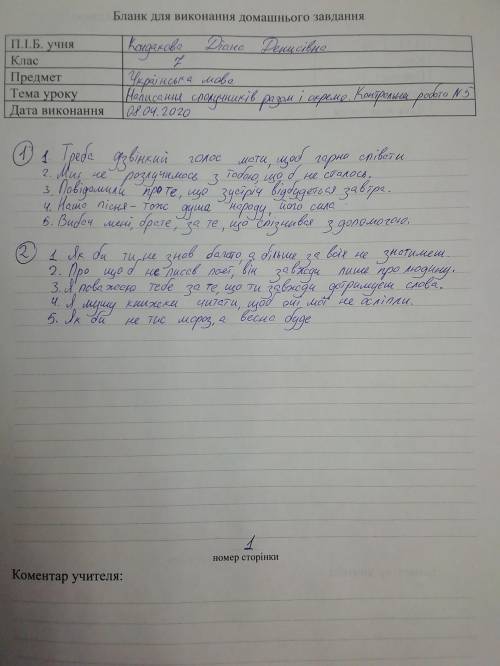 Бланк для виконання домашнього завдання
П.І.Б. учня Кондакова Діана Денисівна
Клас 7
Предмет Українська мова
Тема уроку Написання сполучників разом і окремо. Контрольна робота №5
Дата виконання 08.04.2020
1 1. Треба дзвінкий голос мати, щоб гарно співати
2. Ми не розлучимося з тобою, що б не сталося.
3. Повідомили про те, що зустріч відбудеться завтра.
4. Наша пісня - тож душа народу, його сила
5. Вибач мені, брате, за те, що спізнився з допомогою.
2 1. Як би ти не знав багато, а більше за всіх не знатимеш.
2. Про що б не писав поет, він завжди пише про людину.
3. Я поважаю тебе за те, що ти завжди дотримуєш слова.
4. Я мушу книжски читати, щоб очі мої не осліпли.
5. Як би не тис мороз, а весна буде
1
номер сторінки
Коментар учителя: